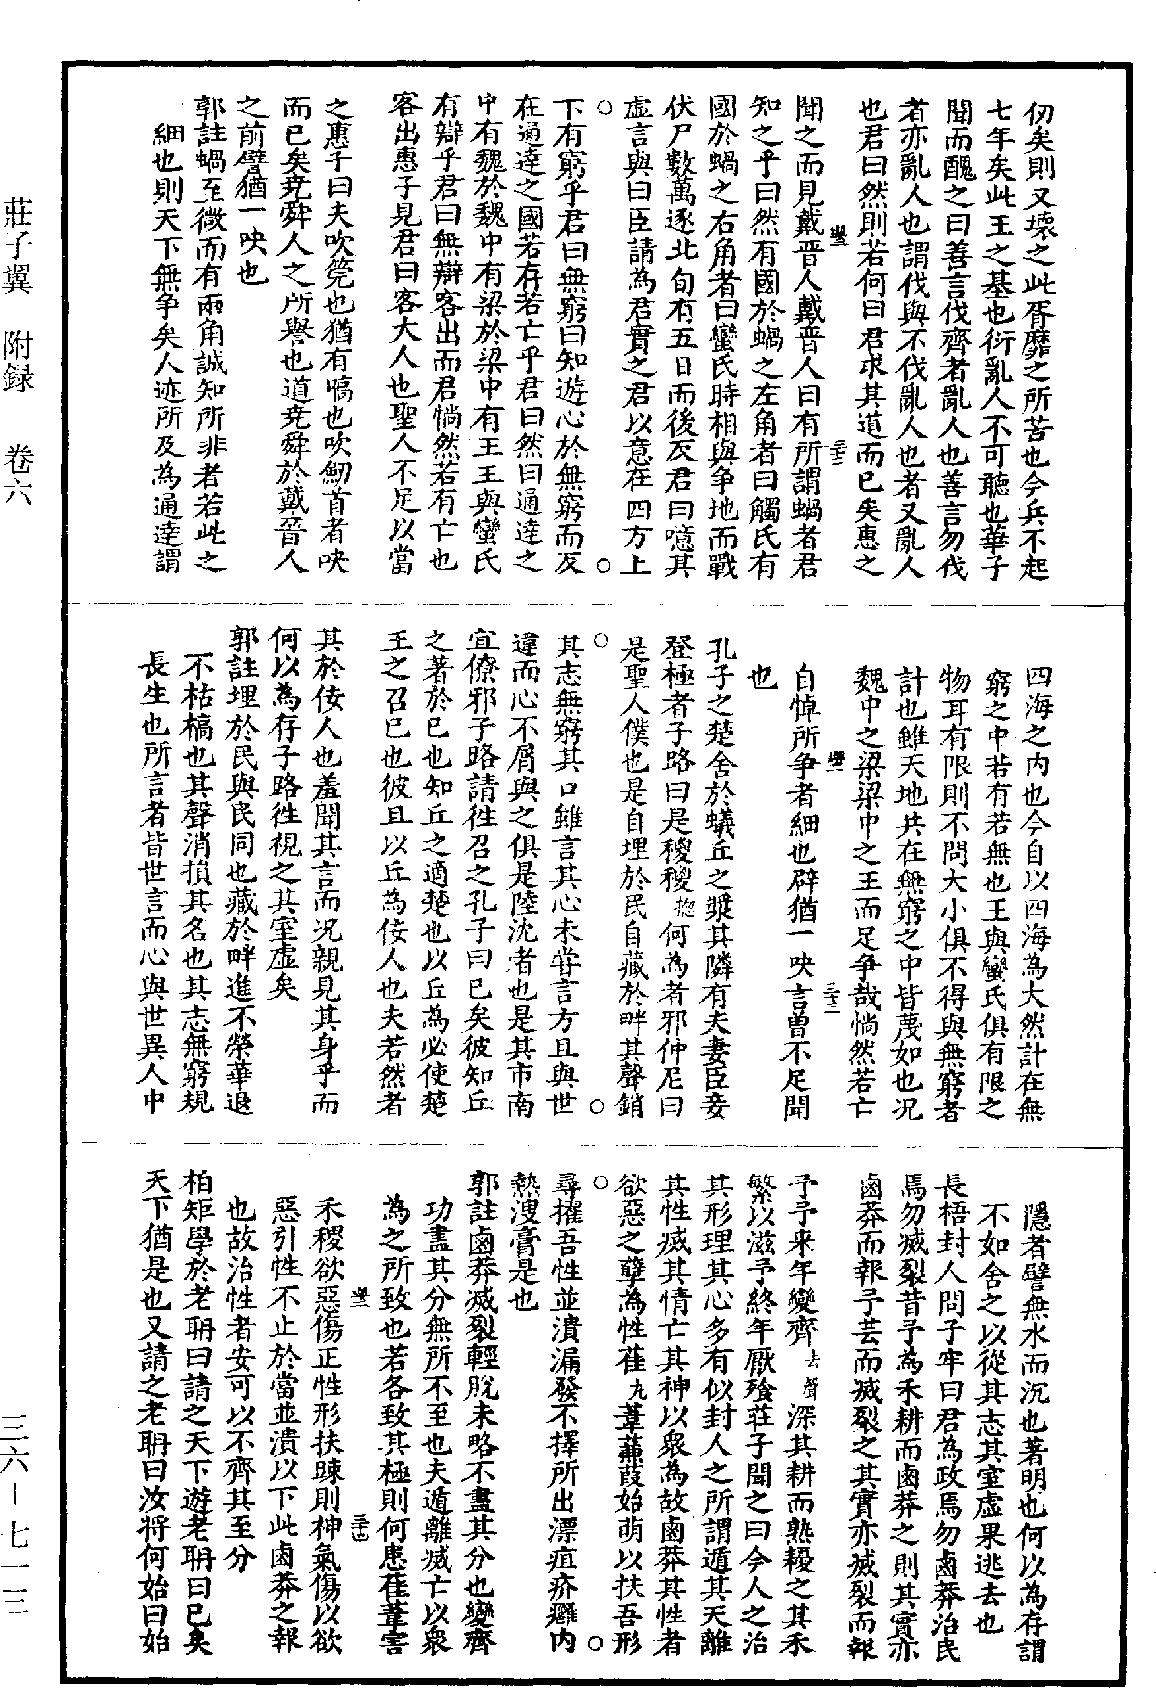 仞矣則又壞之此胥靡之所苦也今兵不起
七年矣此王之基也衍亂人不可聽也華子
聞而醜之曰善言伐齊者亂人也善言勿伐
者亦亂人也謂伐與不伐亂人也者又亂人
也君曰然則若何曰君求其道而已矣惠之
聞之而見戴晉人戴晉人曰有所謂蝸者君
知之乎曰然有國於蝸之左角者曰觸氏有
國於蝸之右角者曰蠻氏時相與爭地而戰
伏尸數萬逐北旬有五日而後反君曰噫其
虛言與曰臣請為君實之君以意在四方上
下有窮乎君曰無窮曰知遊心於無窮而反
在通達之國若存若亡乎君曰然曰通達之
中有魏於魏中有梁於梁中有王王與蠻氏
有辯乎君曰無辯客出而君惝然若有亡也
客出惠子見君曰客大人也聖人不足以當
之惠子曰夫吹筦也猶有嗃也吹劒首者吷
而已矣堯舜人之所譽也道堯舜於戴晉人
之前譬猶一吷也
郭註蝸至微而有兩角誠知所非者若此之
細也則天下無爭矣人迹所及為通達謂
四海之內也今自以四海為大然計在無
窮之中若有若無也王與蠻氏俱有限之
物耳有限則不問大小俱不得與無窮者
計也雖天地共在無窮之中皆蔑如也況
魏中之梁梁中之王而足爭哉惝然若亡
自悼所爭者細也辟猶一吷言曾不足聞
也
孔子之楚舍於蟻丘之漿其隣有夫妻臣妾
登極者子路曰是稯稯揔何為者邪仲尼曰
是聖人僕也是自埋於民自藏於畔其聲銷
其志無窮其口雖言其心未嘗言方且與世
違而心不屑與之俱是陸沈者也是其市南
宜僚邪子路請往召之孔子曰已矣彼知丘
之著於已也知丘之適楚也以丘為必使楚
王之召已也彼且以丘為佞人也夫若然者
其於佞人也羞聞其言而況親見其身乎而
何以為存子路往視之其室虛矣
郭註埋於民與民同也藏於畔進不榮華退
不枯槁也其聲消損其名也其志無窮規
長生也所言者皆世言而心與世異人中
隱者譬無水而沉也著明也何以為存謂
不如舍之以從其志其室虛果逃去也
長梧封人問子牢曰君為政焉勿鹵莽治民
焉勿滅裂昔予為禾耕而鹵莽之則其實亦
鹵莽而報予芸而滅裂之其實亦滅裂而報
予予來年變齊去聲深其耕而熟耰之其禾
繁以滋予終年厭飱莊子聞之曰今人之治
其形理其心多有似封人之所謂遁其天離
其性滅其情亡其神以衆為故鹵莽其性者
欲惡之孽為性萑丸葦蒹葭始萌以扶吾形
尋擢吾性並潰漏發不擇所出漂疽疥癰內
熱溲膏是也
郭註鹵莽滅裂輕脫末略不盡其分也變齊
功盡其分無所不至也夫遁離滅亡以衆
為之所致也若各致其極則何患萑葦害
禾稷欲惡傷正性形扶踈則神氣傷以欲
惡引性不止於當並潰以下此鹵莽之報
也故治性者安可以不齊其至分
柏矩學於老聃曰請之天下遊老聃曰已矣
天下猶是也又請之老聃曰汝將何始曰始
莊子翼 附録 卷六
三六-七一三